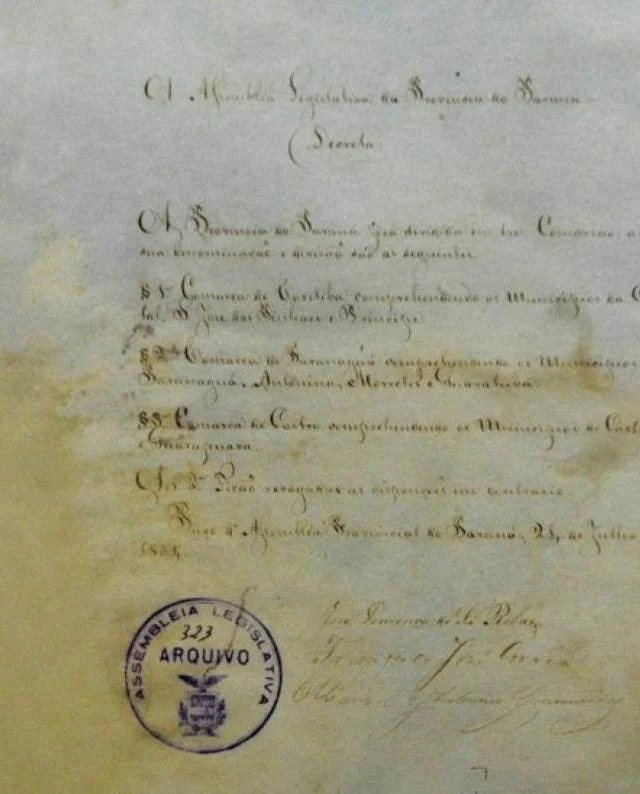 A Assemblea Legislativa da Provincia do Paraná
Decreta:
A Provincia do Paraná fica dividida em tres Comarcas: a
sua denominação e divisão são as seguintes
§ 1º Comarca de Coritiba comprehendendo os Municipios da
tal, S. José dos Pinhaes e Principe
§ 2º Comarca de Paranaguá comprehendendo os Municipios
Paranaguá, Antonina, Morretes e Guaratuba.
§ 3º Comarca de Castro comprehendendo os Municipios de Cast
e Guarapuava.
Art 2º Ficão revogadas as disposições em contrario
Paço d'Assemblea Provincial do Paraná, 21 de Julho
1854.
José Lourenço de Sá Ribas
Francisco José Correia
ASSEMBLEIA LEGISLATIVA
323
ARQUIVO